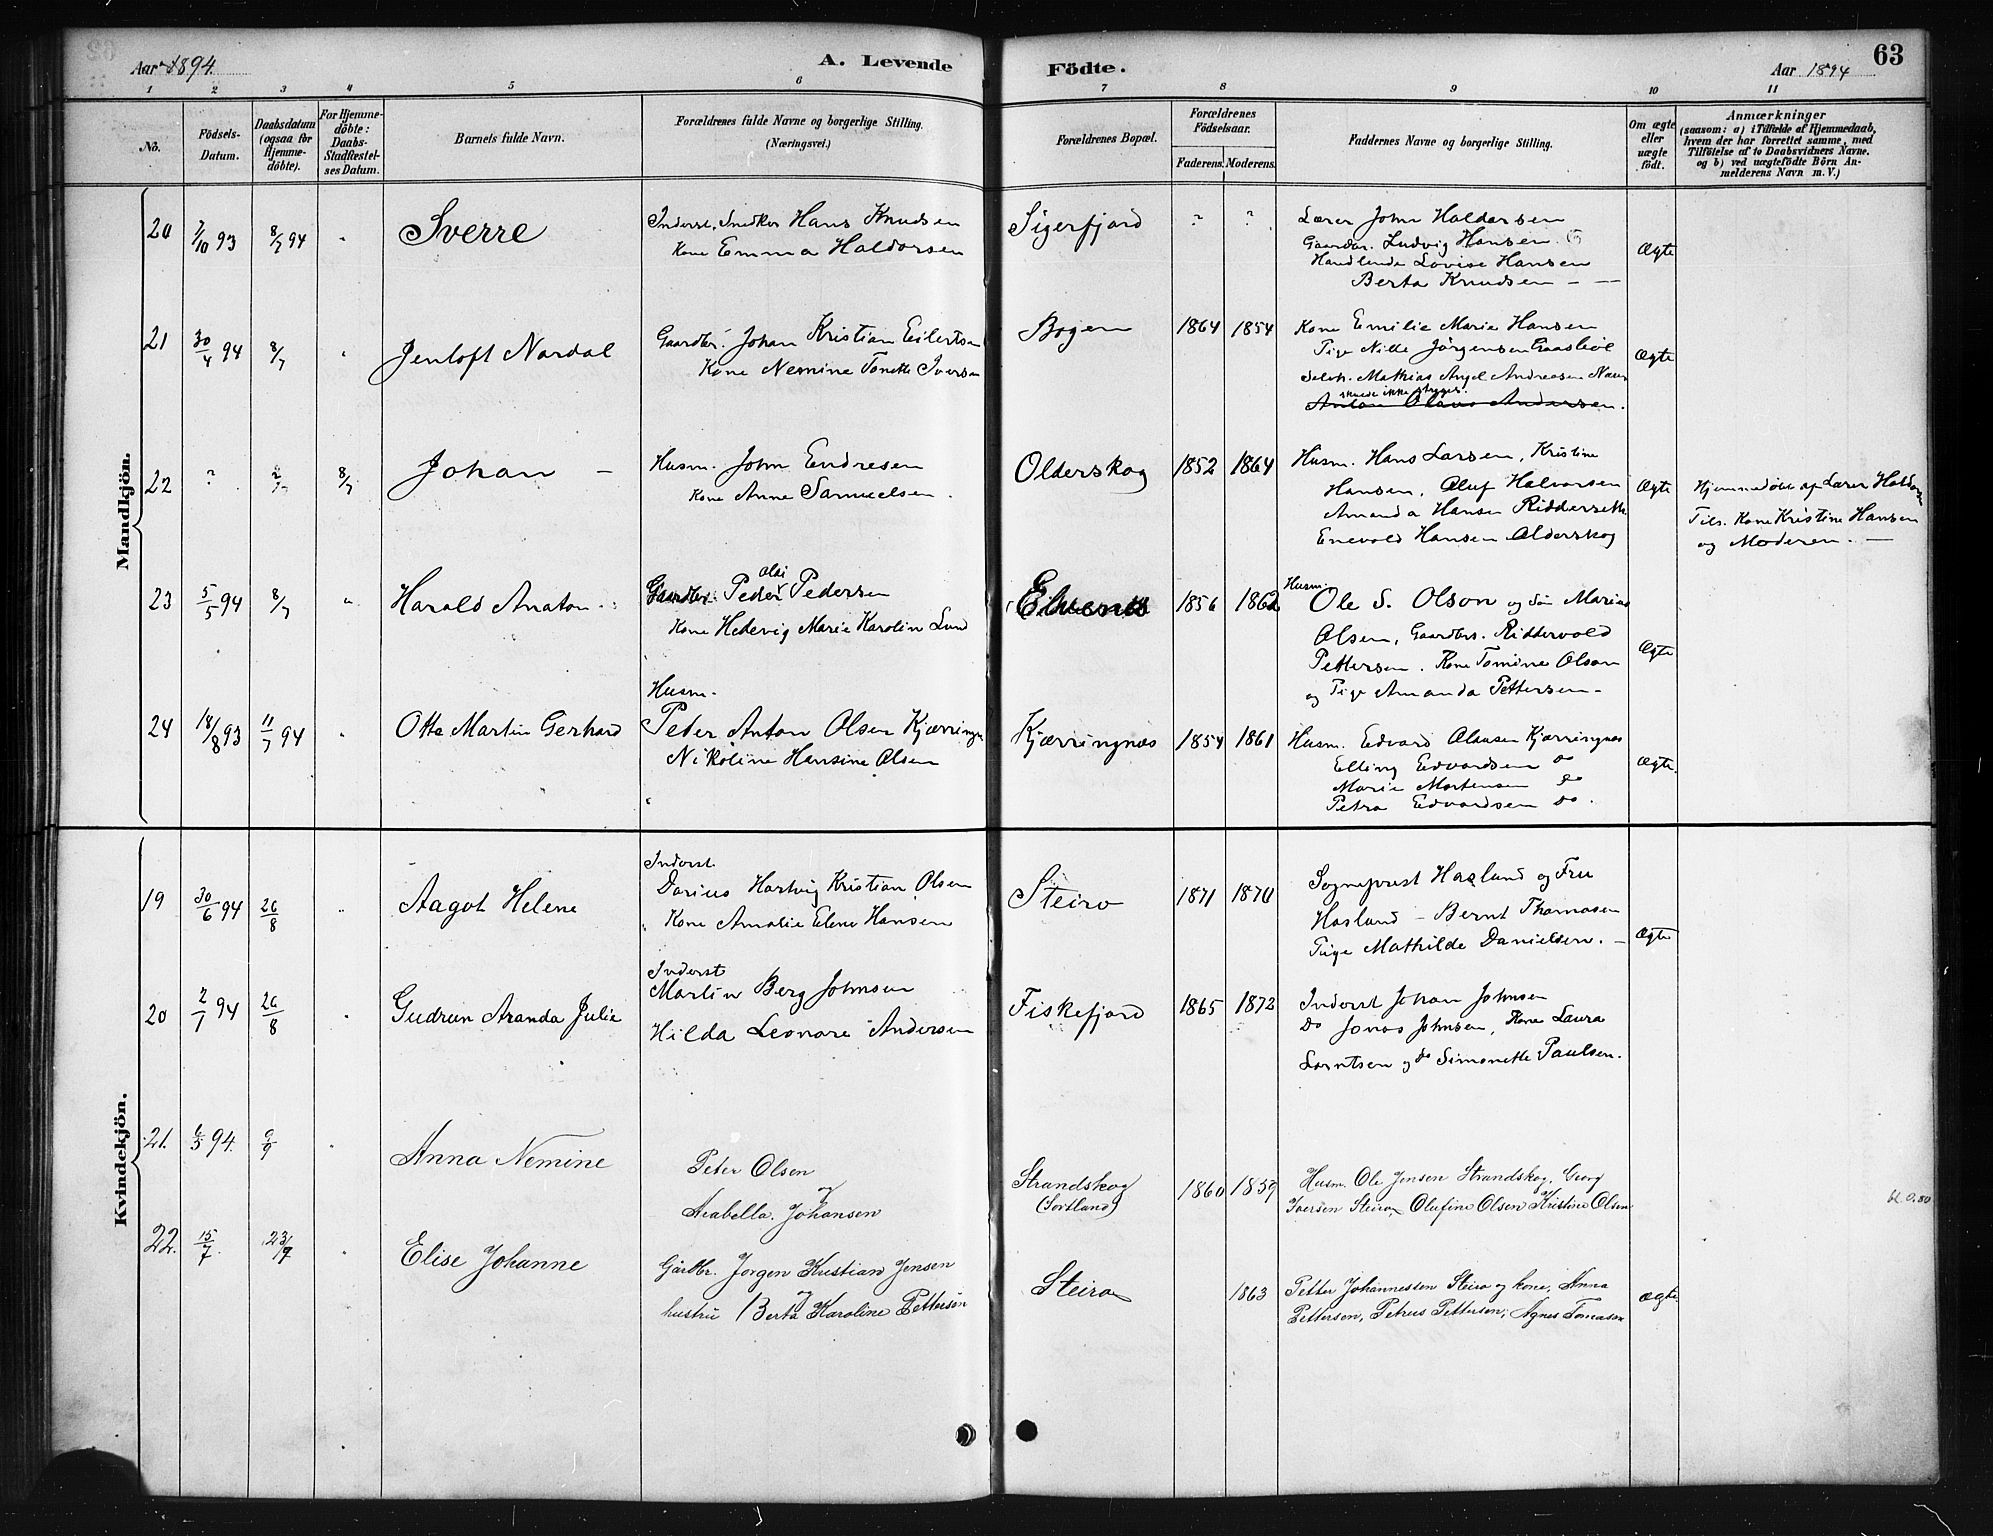 Aar 1894.
A. Levende
Födte.
Aar 1894
63
1 2 3 4 5 6 7 8 9 10 11
No.
Födsels-
Datum.
Daabsdatum
(ogsaa for
Hjemme-
döbte).
For Hjemme-
döbte:
Daabs-
Stadfæstel-
ses Datum.
Barnets fulde Navn.
Forældrenes fulde Navne og borgerlige Stilling.
(Næringsvei.)
Forældrenes Bopæl.
Forældrenes
Födselsaar.
Faderens. Moderens.
Faddernes Navne og borgerlige Stilling.
Om ægte
eller
uægte
födt.
Anmærkninger
(saasom: a) i Tilfælde af Hjemmedaab,
hvem der har forrettet samme, med
Tilföielse af to Daabsvidners Navne.
og b) ved uægtefödte Börn An-
melderens Navn m. V.)
Mandkjön.
20 7/10 93 8/7 94 " Sverre
Inderst, Snedker Hans Knudsen
Kone Emma Haldorsen
Sigerfjord ? ?
Lærer John Haldorsen
Gaardbr. Ludvig Hansen
Handlende Lovise Hansen
Berta Knudsen — —
Ægte
21 30/4 94 8/7 " Jentoft Nordal
Gaardbr. Johan Kristian Eilertsen
Kone Nemine Tonette Iversen
Bogen 1864 1854
Kone Emilie Marie Hansen
Pige Nille Jörgensen Gaasböl
Selvh. Mathias Angel Andreasen Næs
skulde ikke stryges.
Anton Olaus Andersen.
Ægte
22 ? 2/7 8/7 Johan —
Husm. John Endresen
Kone Anne Samuelsen.
Olderskog 1852 1864
Husm. Hans Larsen, Kristine
Hansen, Oluf Halvorsen
Amanda Hansen Riddersette
Enevold Hansen Olderskog
Ægte
Hjemmedöbt af Lærer Haldorsen
Tils. Kone Kristine Hansen
og Moderen. —
23 5/5 94 8/7 " Harald Anaton.
Oldi
Gaardbr. Peder Pedersen
Kone Hedevig Marie Karolin Lund
Elvenes 1856 1862
Husm.
Ole S. Olson og Sön Marius
Olsen, Gaardbr. Riddervold
Pettersen. Kone Tomine Olson
og Pige Amanda Pettersen.
Ægte
24 18/8 93 11/7 94 " Otte Martin Gerhard
Husm.
Peder Anton Olsen Kjærringn
Nikoline Hansine Olsen
Kjærringnæs 1854 1861
Husm. Edvard Olausen Kjærringnæs
Elling Edvardsen do
Marie Mortensen do
Petra Edvardsen do.
Ægte.
Kvindekjön.
19 30/6 94 26/8 " Aagot Helene
Inderst
Darius Hartvig Kristian Olsen
Kone Amalie Elene Hansen
Steiro 1871 1870
Sogneprest Hasland og Fru
Hasland — Bernt Thomasen
Pige Mathilde Danielsen. —
Ægte
20 2/7 94 26/8 " Gudrun Aranda Julie
Inderst
Martin Berg Johnsen
Hilda Leonore Andersen
Fiskefjord 1865 1872
Inderst Johan Johnsen
Do Jonas Johnsen, Kone Laura
Lorntsen og do Simonette Paulsen.
21. 6/5 94. 9/9 " Anna Nemine
Peter Olsen
og
Arabella Johansen
Strandskog
(Sortland)
1860 1859
Husm. Ole Jensen Strandskog, Georg
Iversen Steiro, Olufine Olsen Kristine Olsen
bl. 0.80
22. 15/7. 23/9 " Elise Johanne
Gårdbr. Jørgen Kristian Jensen
og
hustru Berta Karoline Pettersen
Steiro 1863
Petter Johannessen Steiro og kone, Anna
Pettersen, Petrus Pettersen, Agnes Tomason
Ægte